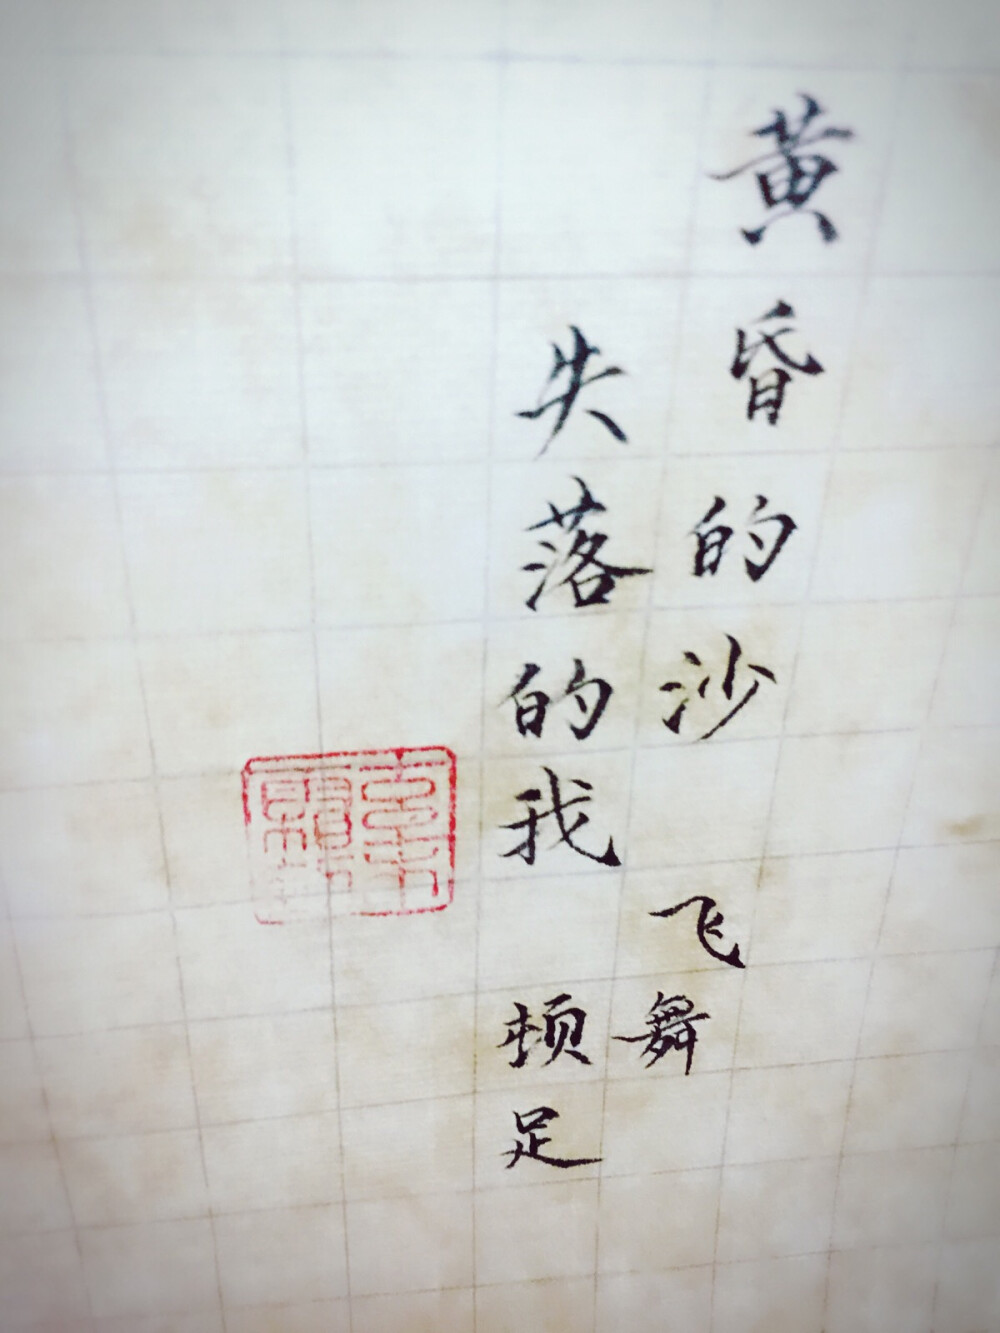 黄昏的沙 飞舞
失落的我 顿足